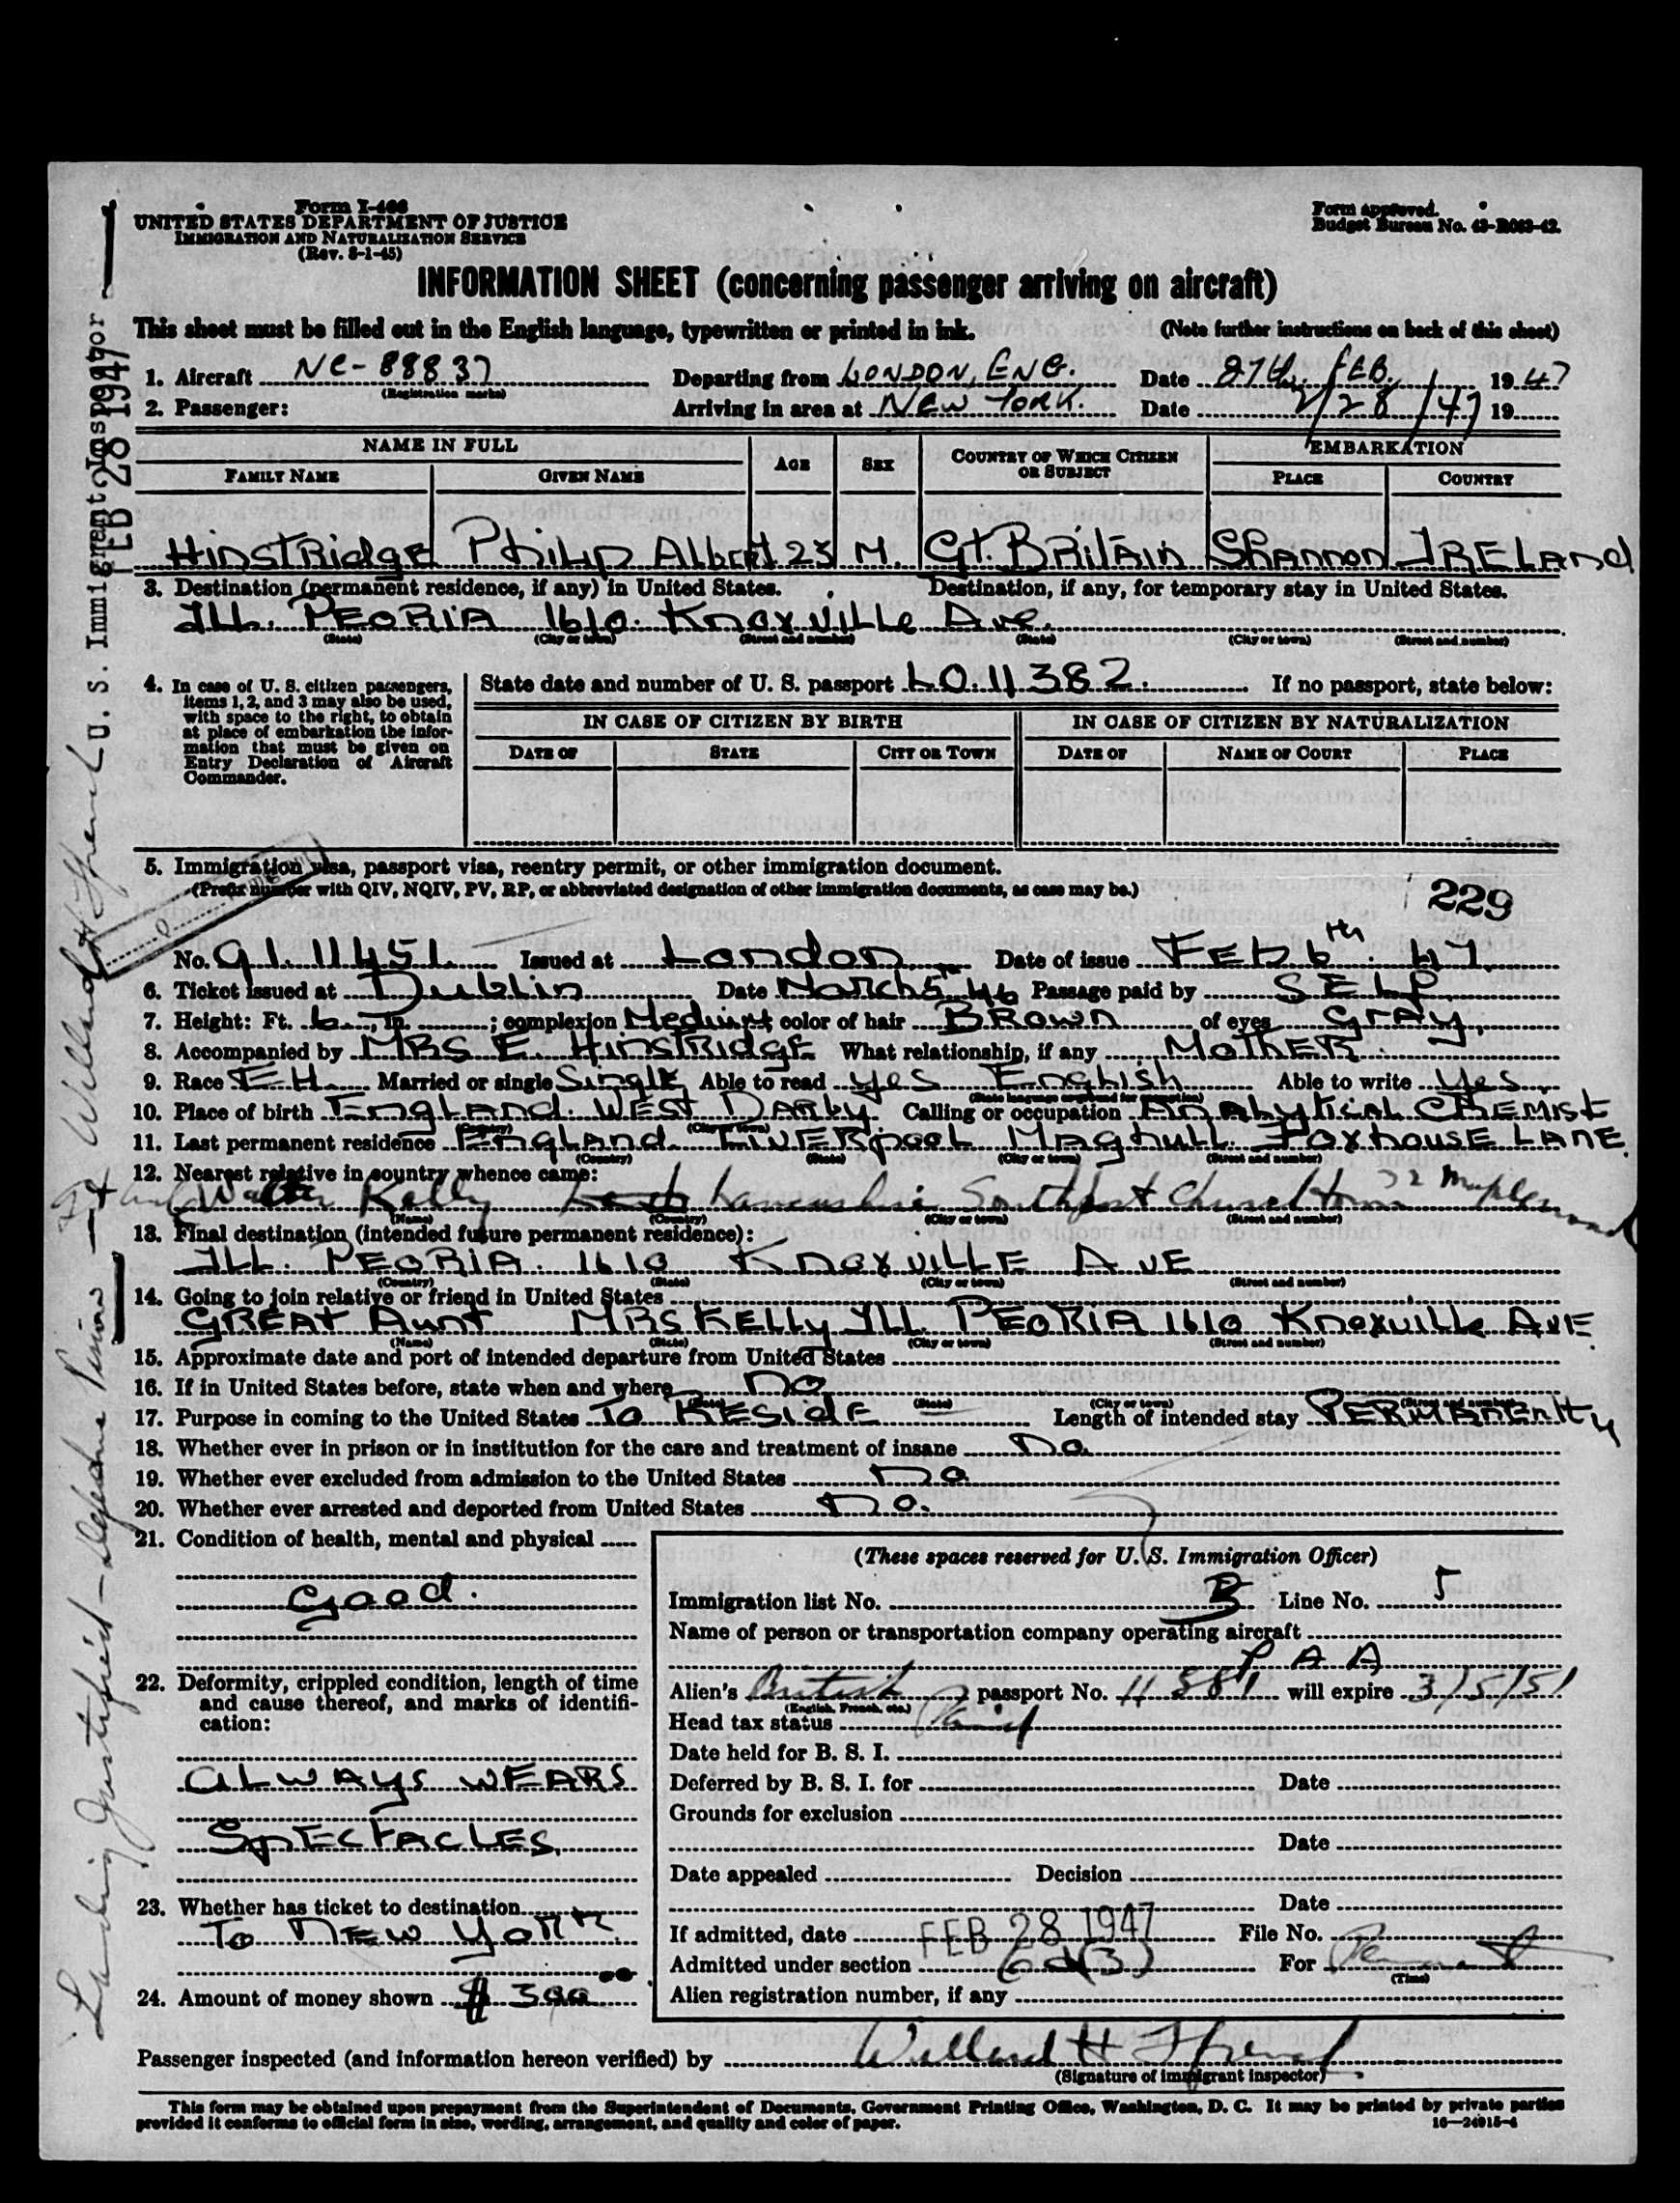 Form I-466
UNITED STATES DEPARTMENT OF JUSTICE
IMMIGRATION AND NATURALIZATION SERVICE
(Rev. 8-1-45)
Form approved.
Budget Bureau No. 43-R063-42.
INFORMATION SHEET (concerning passenger arriving on aircraft)
This sheet must be filled out in the English language, typewritten or printed in ink. (Note further instructions on back of this sheet)
1. Aircraft NC-88837 Departing from LONDON, ENG. Date 27th. FEB. 1947
(Registration marks)
2. Passenger: Arriving in area at NEW YORK. Date 2/28/47 19
NAME IN FULL AGE SEX COUNTRY OF WHICH CITIZEN OR SUBJECT EMBARKATION
FAMILY NAME GIVEN NAME PLACE COUNTRY
HinstRidge Philip Albert 23 M. Gt. BRitAin Shannon IRELAnd
3. Destination (permanent residence, if any) in United States. Destination, if any, for temporary stay in United States.
ILL. PEORiA 1610. KnoxvILLe Ave.
(State) (City or town) (Street and number) (State) (City or town) (Street and number)
4. In case of U. S. citizen passengers, items 1, 2, and 3 may also be used, with space to the right, to obtain at place of embarkation the information that must be given on Entry Declaration of Aircraft Commander.
State date and number of U. S. passport LO.11382. If no passport, state below:
IN CASE OF CITIZEN BY BIRTH IN CASE OF CITIZEN BY NATURALIZATION
DATE OF STATE CITY OR TOWN DATE OF NAME OF COURT PLACE
5. Immigration visa, passport visa, reentry permit, or other immigration document.
(Prefix number with QIV, NQIV, PV, RP, or abbreviated designation of other immigration documents, as case may be.)
229
No. QI. 11451. Issued at London Date of issue FEb 6th. 47
6. Ticket issued at Dublin Date March 5th 46 Passage paid by SELF
7. Height: Ft. 6, In. ; complexion Medium; color of hair BRown of eyes GRAy.
8. Accompanied by MRS E. HinstRidgE What relationship, if any MOTHER.
9. Race EH. Married or single SinglE Able to read yes English Able to write yes.
(State language or ground for exemption)
10. Place of birth EnglAnd. WEST DARby. Calling or occupation AnAlyticAL CHEMist
(Country) (City or town)
11. Last permanent residence EnglAnd. LIVERpooL MAghuLL FoxhousE LANE
(Country) (State) (City or town) (Street and number)
12. Nearest relative in country whence came:
Walter Kelly Lancashire Southport Churchtown 32 Maplewood
(Name) (Country) (City or town) (Street and number)
13. Final destination (intended future permanent residence):
ILL. PEORIA. 1610 KnoxvILLE AvE
(Country) (State) (City or town) (Street and number)
14. Going to join relative or friend in United States
GREAt Aunt MRS KELLy ILL. PEORIA 1610 Knoxville AvE.
(Name) (State) (City or town) (Street and number)
15. Approximate date and port of intended departure from United States
16. If in United States before, state when and where no
(Date) (State) (City or town) (Street and number)
17. Purpose in coming to the United States To RESidE Length of intended stay PERMAnEntly
18. Whether ever in prison or in institution for the care and treatment of insane no
19. Whether ever excluded from admission to the United States no
20. Whether ever arrested and deported from United States no.
21. Condition of health, mental and physical
good.
22. Deformity, crippled condition, length of time and cause thereof, and marks of identification:
ALWAys WEARS
SpECtACLES.
23. Whether has ticket to destination
To NEW yoRk
24. Amount of money shown $ 300
(These spaces reserved for U. S. Immigration Officer)
Immigration list No. B Line No. 5
Name of person or transportation company operating aircraft
P A A
Alien's British passport No. will expire 3/5/51
(English, French, etc.)
Head tax status Paid
Date held for B. S. I.
Deferred by B. S. I. for Date
Grounds for exclusion
Date
Date appealed Decision
Date
If admitted, date FEB 28 1947 File No.
Admitted under section 6d(3) For Permanent
(Time)
Alien registration number, if any
Passenger inspected (and information hereon verified) by Willard H
(Signature of immigrant inspector)
This form may be obtained upon prepayment from the Superintendent of Documents, Government Printing Office, Washington, D. C. It may be printed by private parties
provided it conforms to official form in size, wording, arrangement, and quality and color of paper. 16—24915-4
Landing Justified - Willard H
U. S. Immigrant Inspector
FEB 28 1947